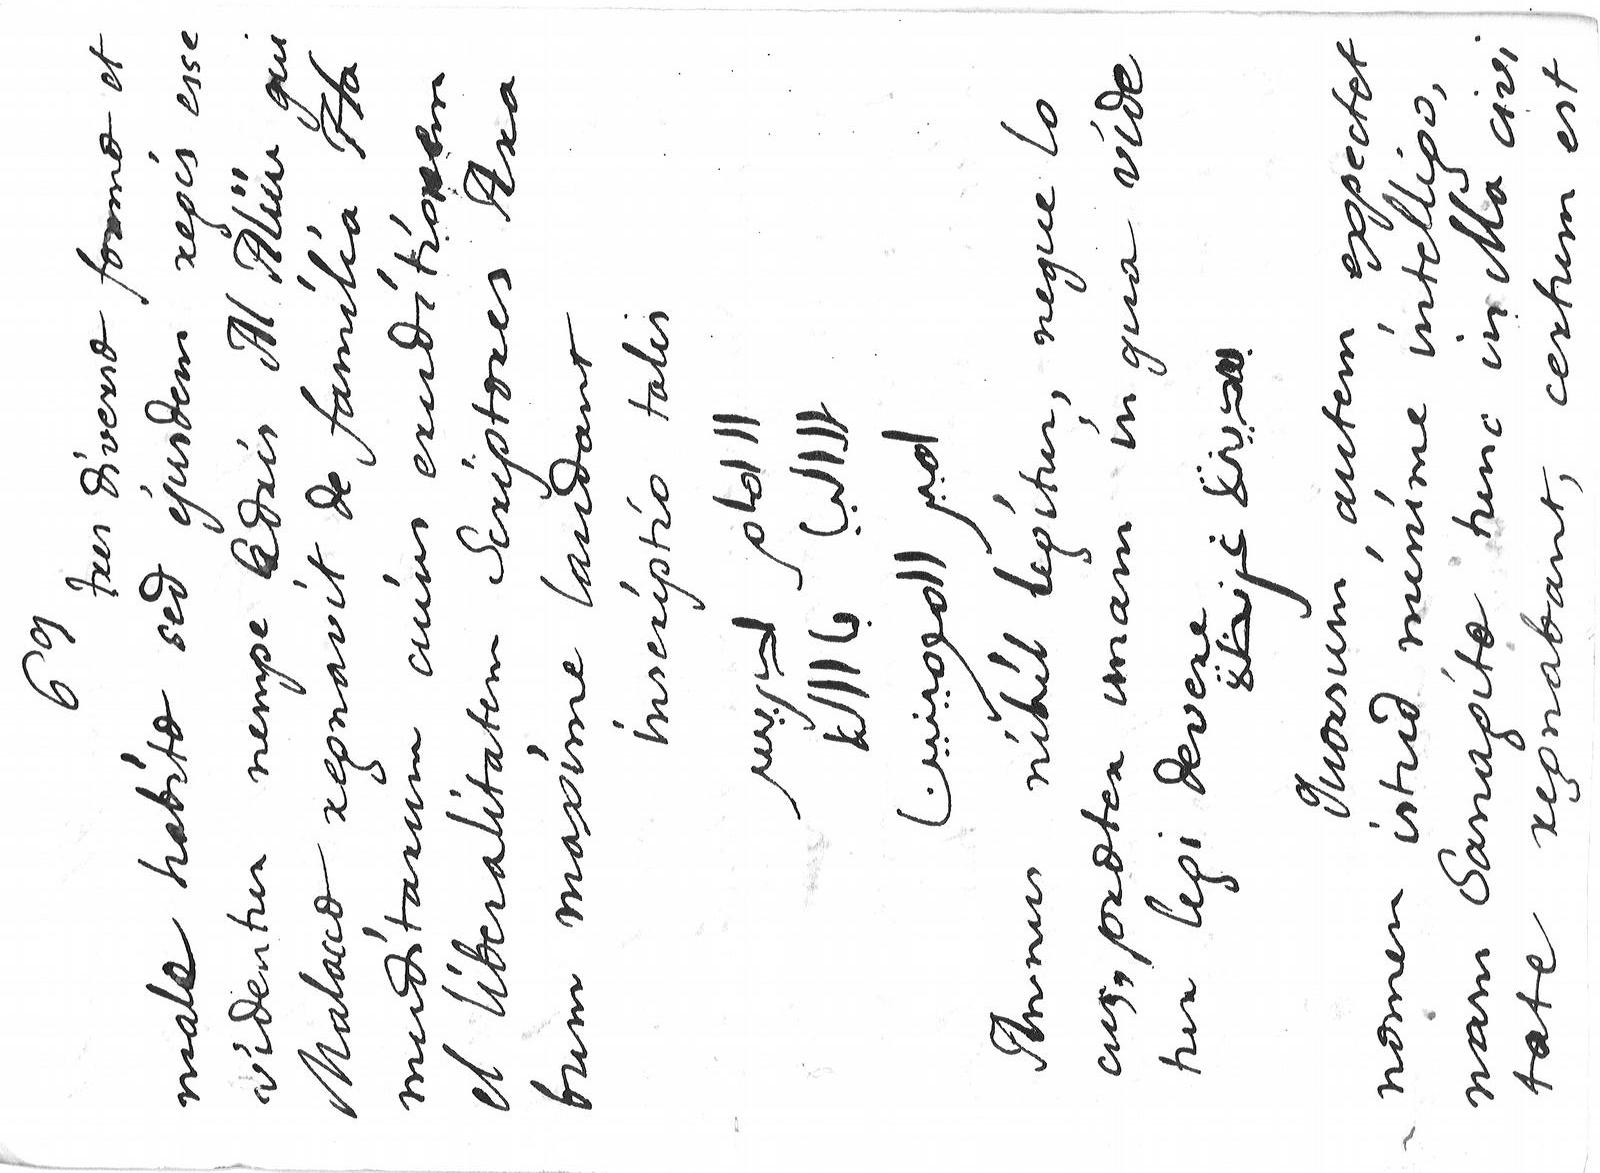 69
tres diversæ formæ et
male habitæ sed ejusdem regis esse
videntur nempe Edris Al Aliii qui
Malaccæ regnavit de familia Ha
muditarum cuius eruditionem
et liberalitatem Scriptores Ara
bum maxime laudant
inscriptio talis
الامام ادريس
العالي بالله
امير المومنين
Annus nihil legitur, neque lo
cus, præter unam in qua vide
tur legi devere
Quorsum autem expectet
nomen istud minime intelligo,
nam Sanagitæ tunc in illa civi
tate regnabant, certum est